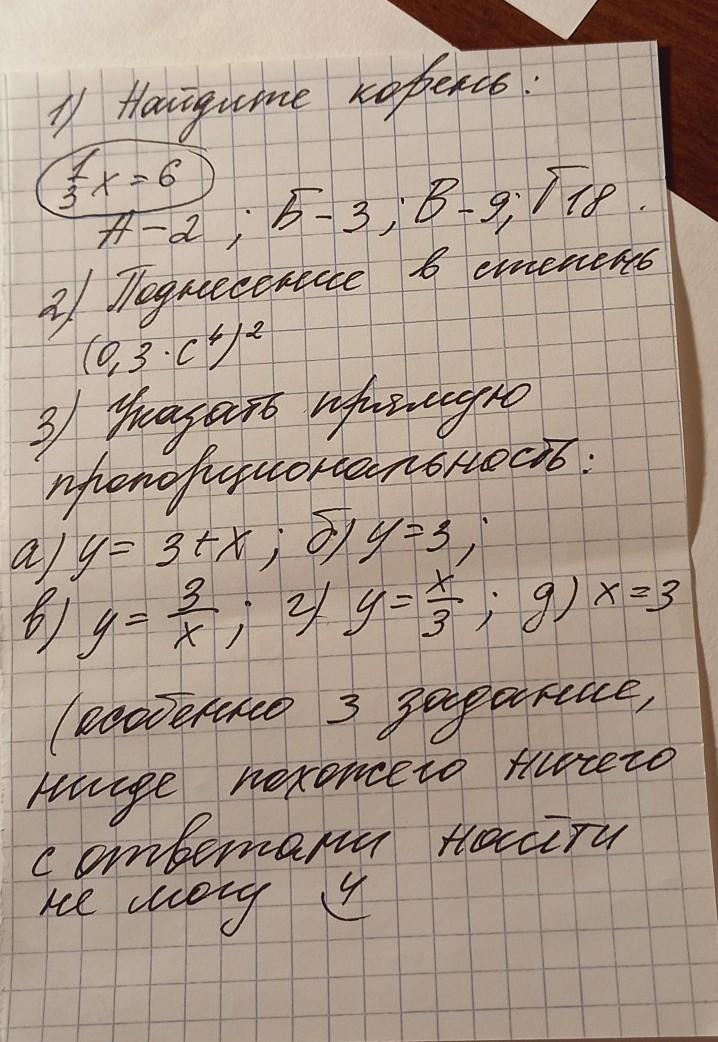 1) Найдите корень:
1/3 x = 6
А - 2 ; Б - 3 ; В - 9 ; Г 18 .
2) Поднесение в степень
(0,3 · c⁴)²
3) Указать прямую
пропорциональность:
а) y = 3 + x ; б) y = 3 ;
в) y = 3/x ; г) y = x/3 ; д) x = 3
(особенно 3 задание,
нигде похожего ничего
с ответами найти
не могу